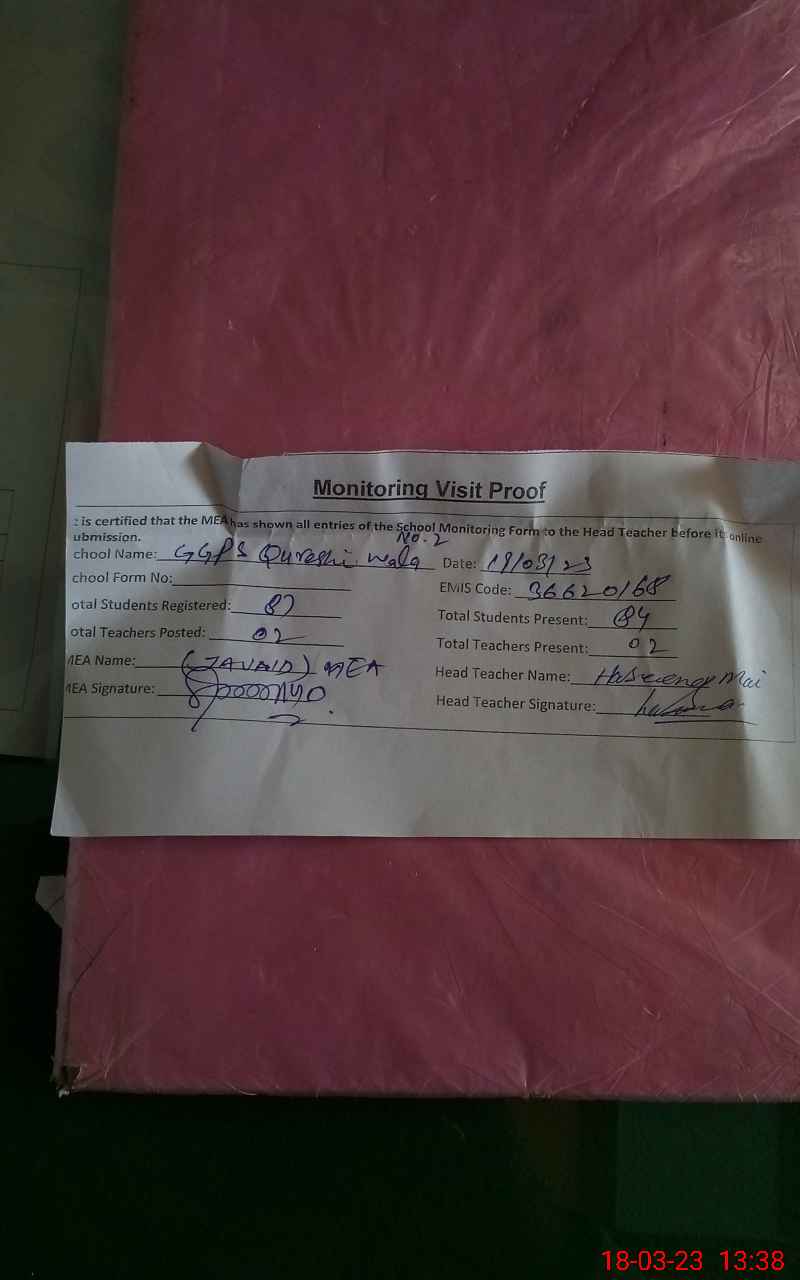 Monitoring Visit Proof
: is certified that the MEA has shown all entries of the School Monitoring Form to the Head Teacher before it online
ubmission.
No. 2
chool Name: GGPS Qureshi wala Date: 18/03/23
chool Form No: EMIS Code: 36620168
otal Students Registered: 87 Total Students Present: 84
otal Teachers Posted: 02 Total Teachers Present: 02
MEA Name: (JAVAID) MEA Head Teacher Name: Mai
MEA Signature: Head Teacher Signature:
18-03-23 13:38